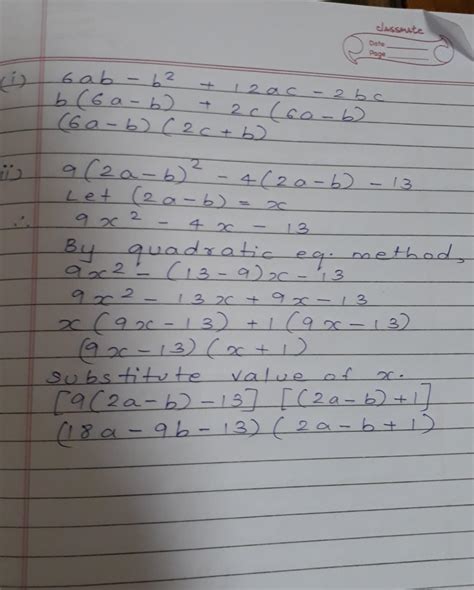 classmate
Date
Page
(i) 6ab - b² + 12ac - 2bc
b(6a-b) + 2c(6a-b)
(6a-b)(2c+b)
ii) 9(2a-b)² - 4(2a-b) - 13
Let (2a-b) = x
∴ 9x² - 4x - 13
By quadratic eq. method,
9x² - (13-9)x - 13
9x² - 13x + 9x - 13
x(9x-13) + 1(9x-13)
(9x-13)(x+1)
substitute value of x.
[9(2a-b)-13] [(2a-b)+1]
(18a-9b-13)(2a-b+1)